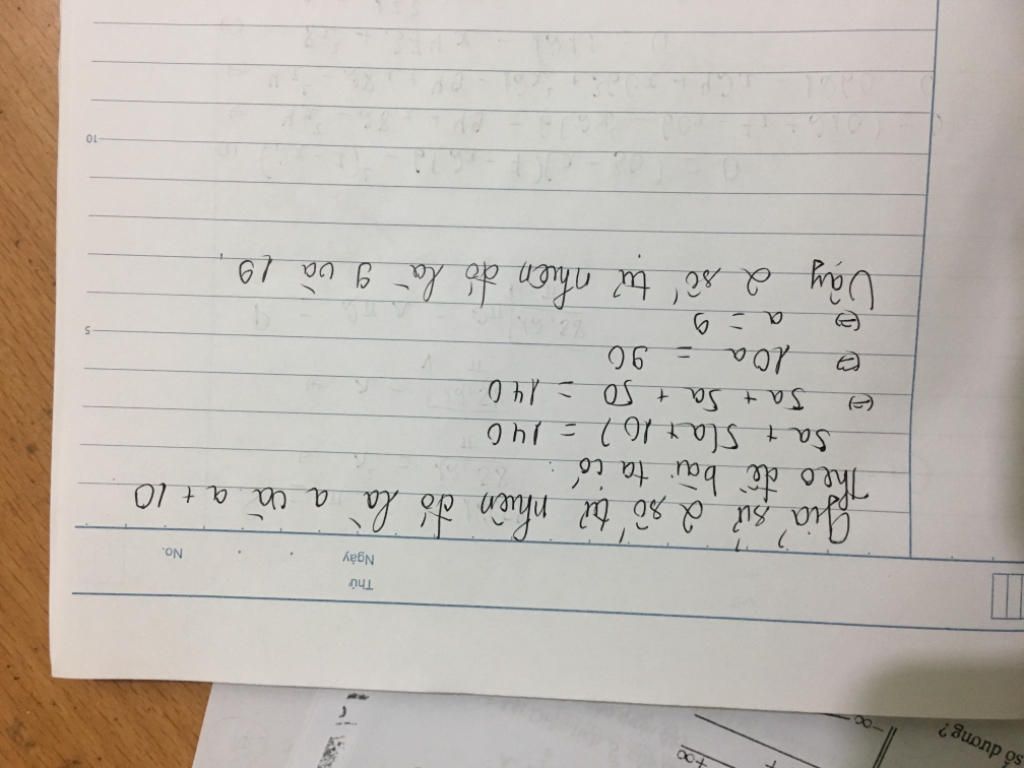 Thứ
Ngày
No.
Giả sử 2 số tự nhiên đó là a và a + 10
Theo đề bài ta có:
5a + 5(a + 10) = 140
(=) 5a + 5a + 50 = 140
(=) 10a = 90
(=) a = 9
Vậy 2 số tự nhiên đó là 9 và 19.
5
10
số dương?
-∞
+∞